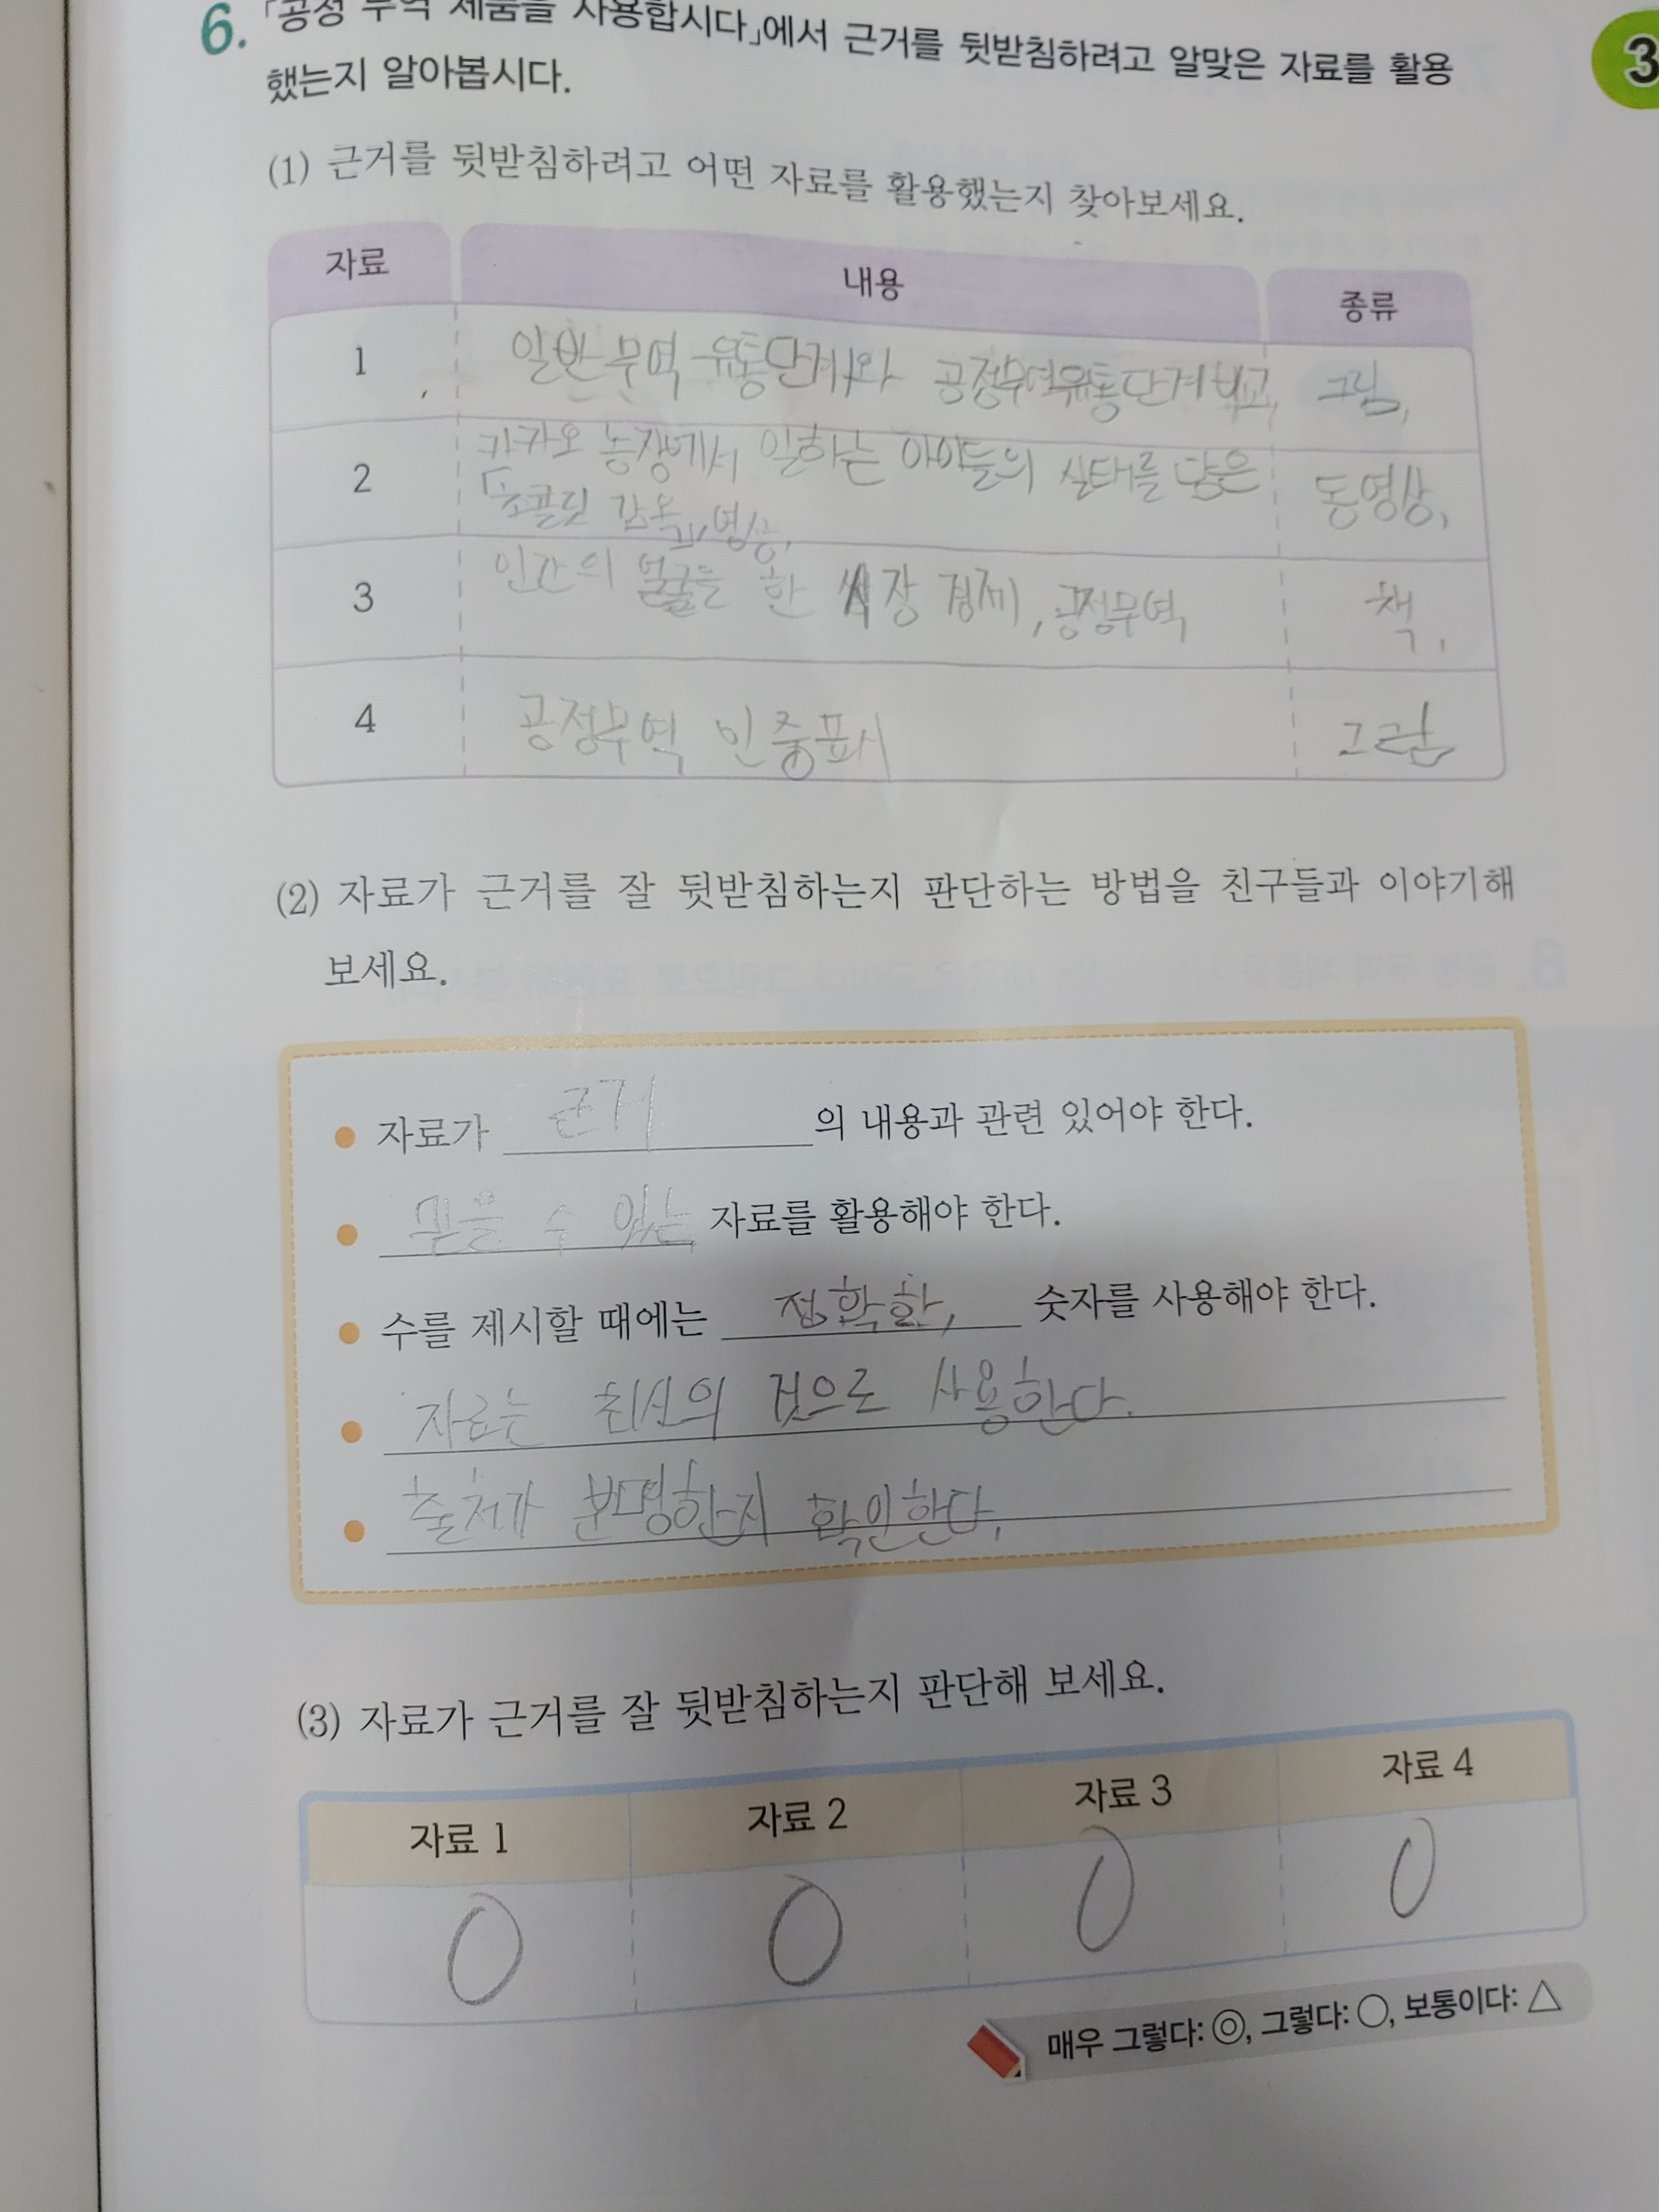 6. 「공정 무역 제품을 사용합시다」에서 근거를 뒷받침하려고 알맞은 자료를 활용
했는지 알아봅시다.
3
(1) 근거를 뒷받침하려고 어떤 자료를 활용했는지 찾아보세요.
자료 내용 종류
1 일반무역 유통단계와 공정무역유통단계 비교, 그림,
2 카카오 농장에서 일하는 아이들의 실태를 담은 동영상,
「초콜릿 감옥」, 영상,
3 인간의 얼굴을 한 시장 경제, 공정무역 책,
4 공정무역 인증표시 그림
(2) 자료가 근거를 잘 뒷받침하는지 판단하는 방법을 친구들과 이야기해
보세요.
● 자료가 근거 의 내용과 관련 있어야 한다.
● 믿을 수 있는 자료를 활용해야 한다.
● 수를 제시할 때에는 정확한, 숫자를 사용해야 한다.
● 자료는 최신의 것으로 사용한다.
● 출처가 분명한지 확인한다.
(3) 자료가 근거를 잘 뒷받침하는지 판단해 보세요.
자료 1 자료 2 자료 3 자료 4
○ ○ ○ ○
매우 그렇다: ◎, 그렇다: ○, 보통이다: △